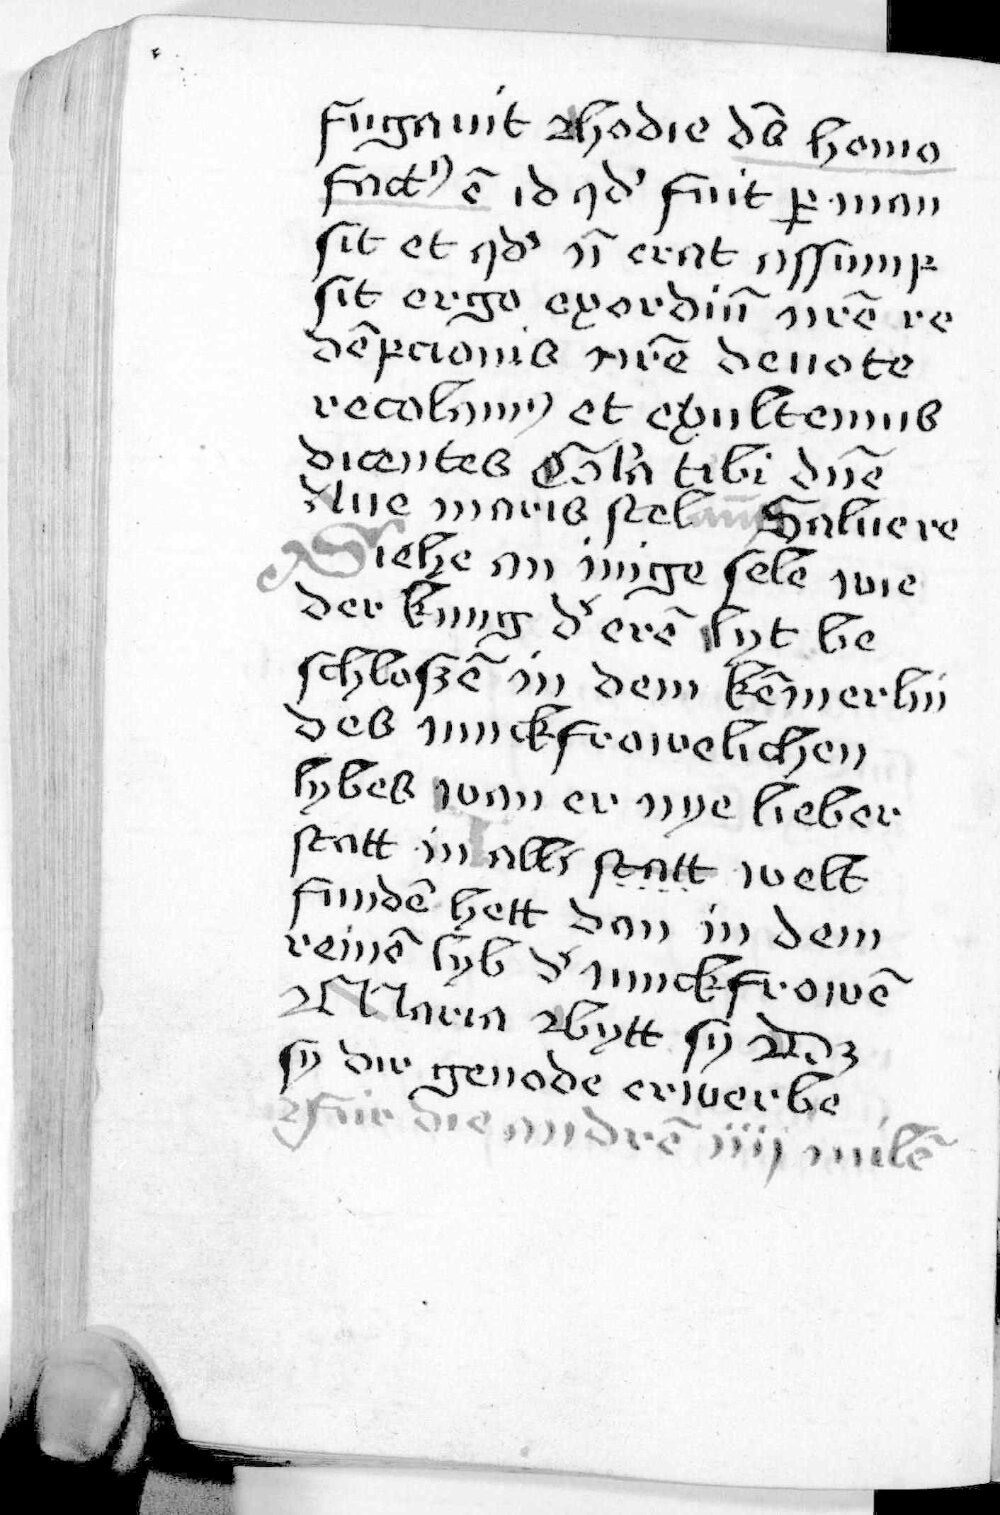 fugauit Rhodie dn̄s homo
fact⁹ ē id qd' fuit ꝑ man
sit et qd' n̄ erat assump
sit ergo exordiū nr̄e re
dēpcionis nr̄e deuote
recolam⁹ et exultemus
dicentes tibi dn̄e
Aue maris stel Salue re
Siehe an inige sele wie
der kung d' erē lyt be
schloszē in dem kēmerlin
des iunckfrowelichen
lybes wan er nye lieber
statt in aller statt welt
fundē hett dan in dem
reinē lyb d' iunckfrowē
Maria bytt sy dz
sy dir genode erwerbe
fur die andrē iiij milē